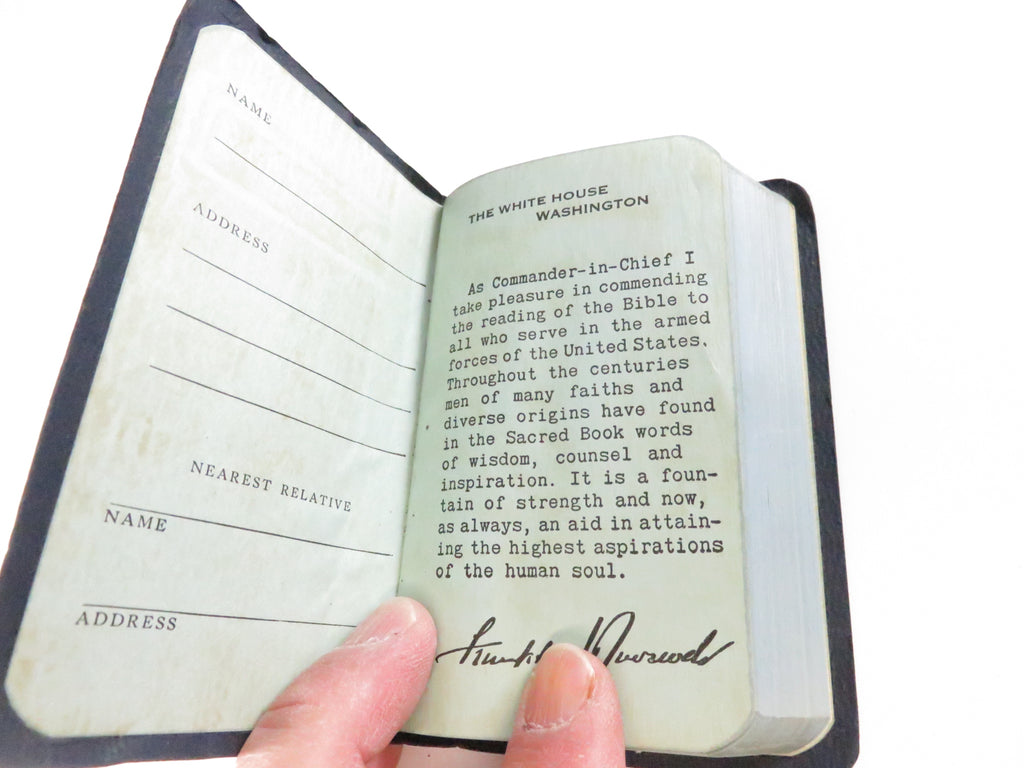 NAME
ADDRESS
NEAREST RELATIVE
NAME
ADDRESS
THE WHITE HOUSE
WASHINGTON
As Commander-in-Chief I
take pleasure in commending
the reading of the Bible to
all who serve in the armed
forces of the United States.
Throughout the centuries
men of many faiths and
diverse origins have found
in the Sacred Book words
of wisdom, counsel and
inspiration. It is a foun-
tain of strength and now,
as always, an aid in attain-
ing the highest aspirations
of the human soul.